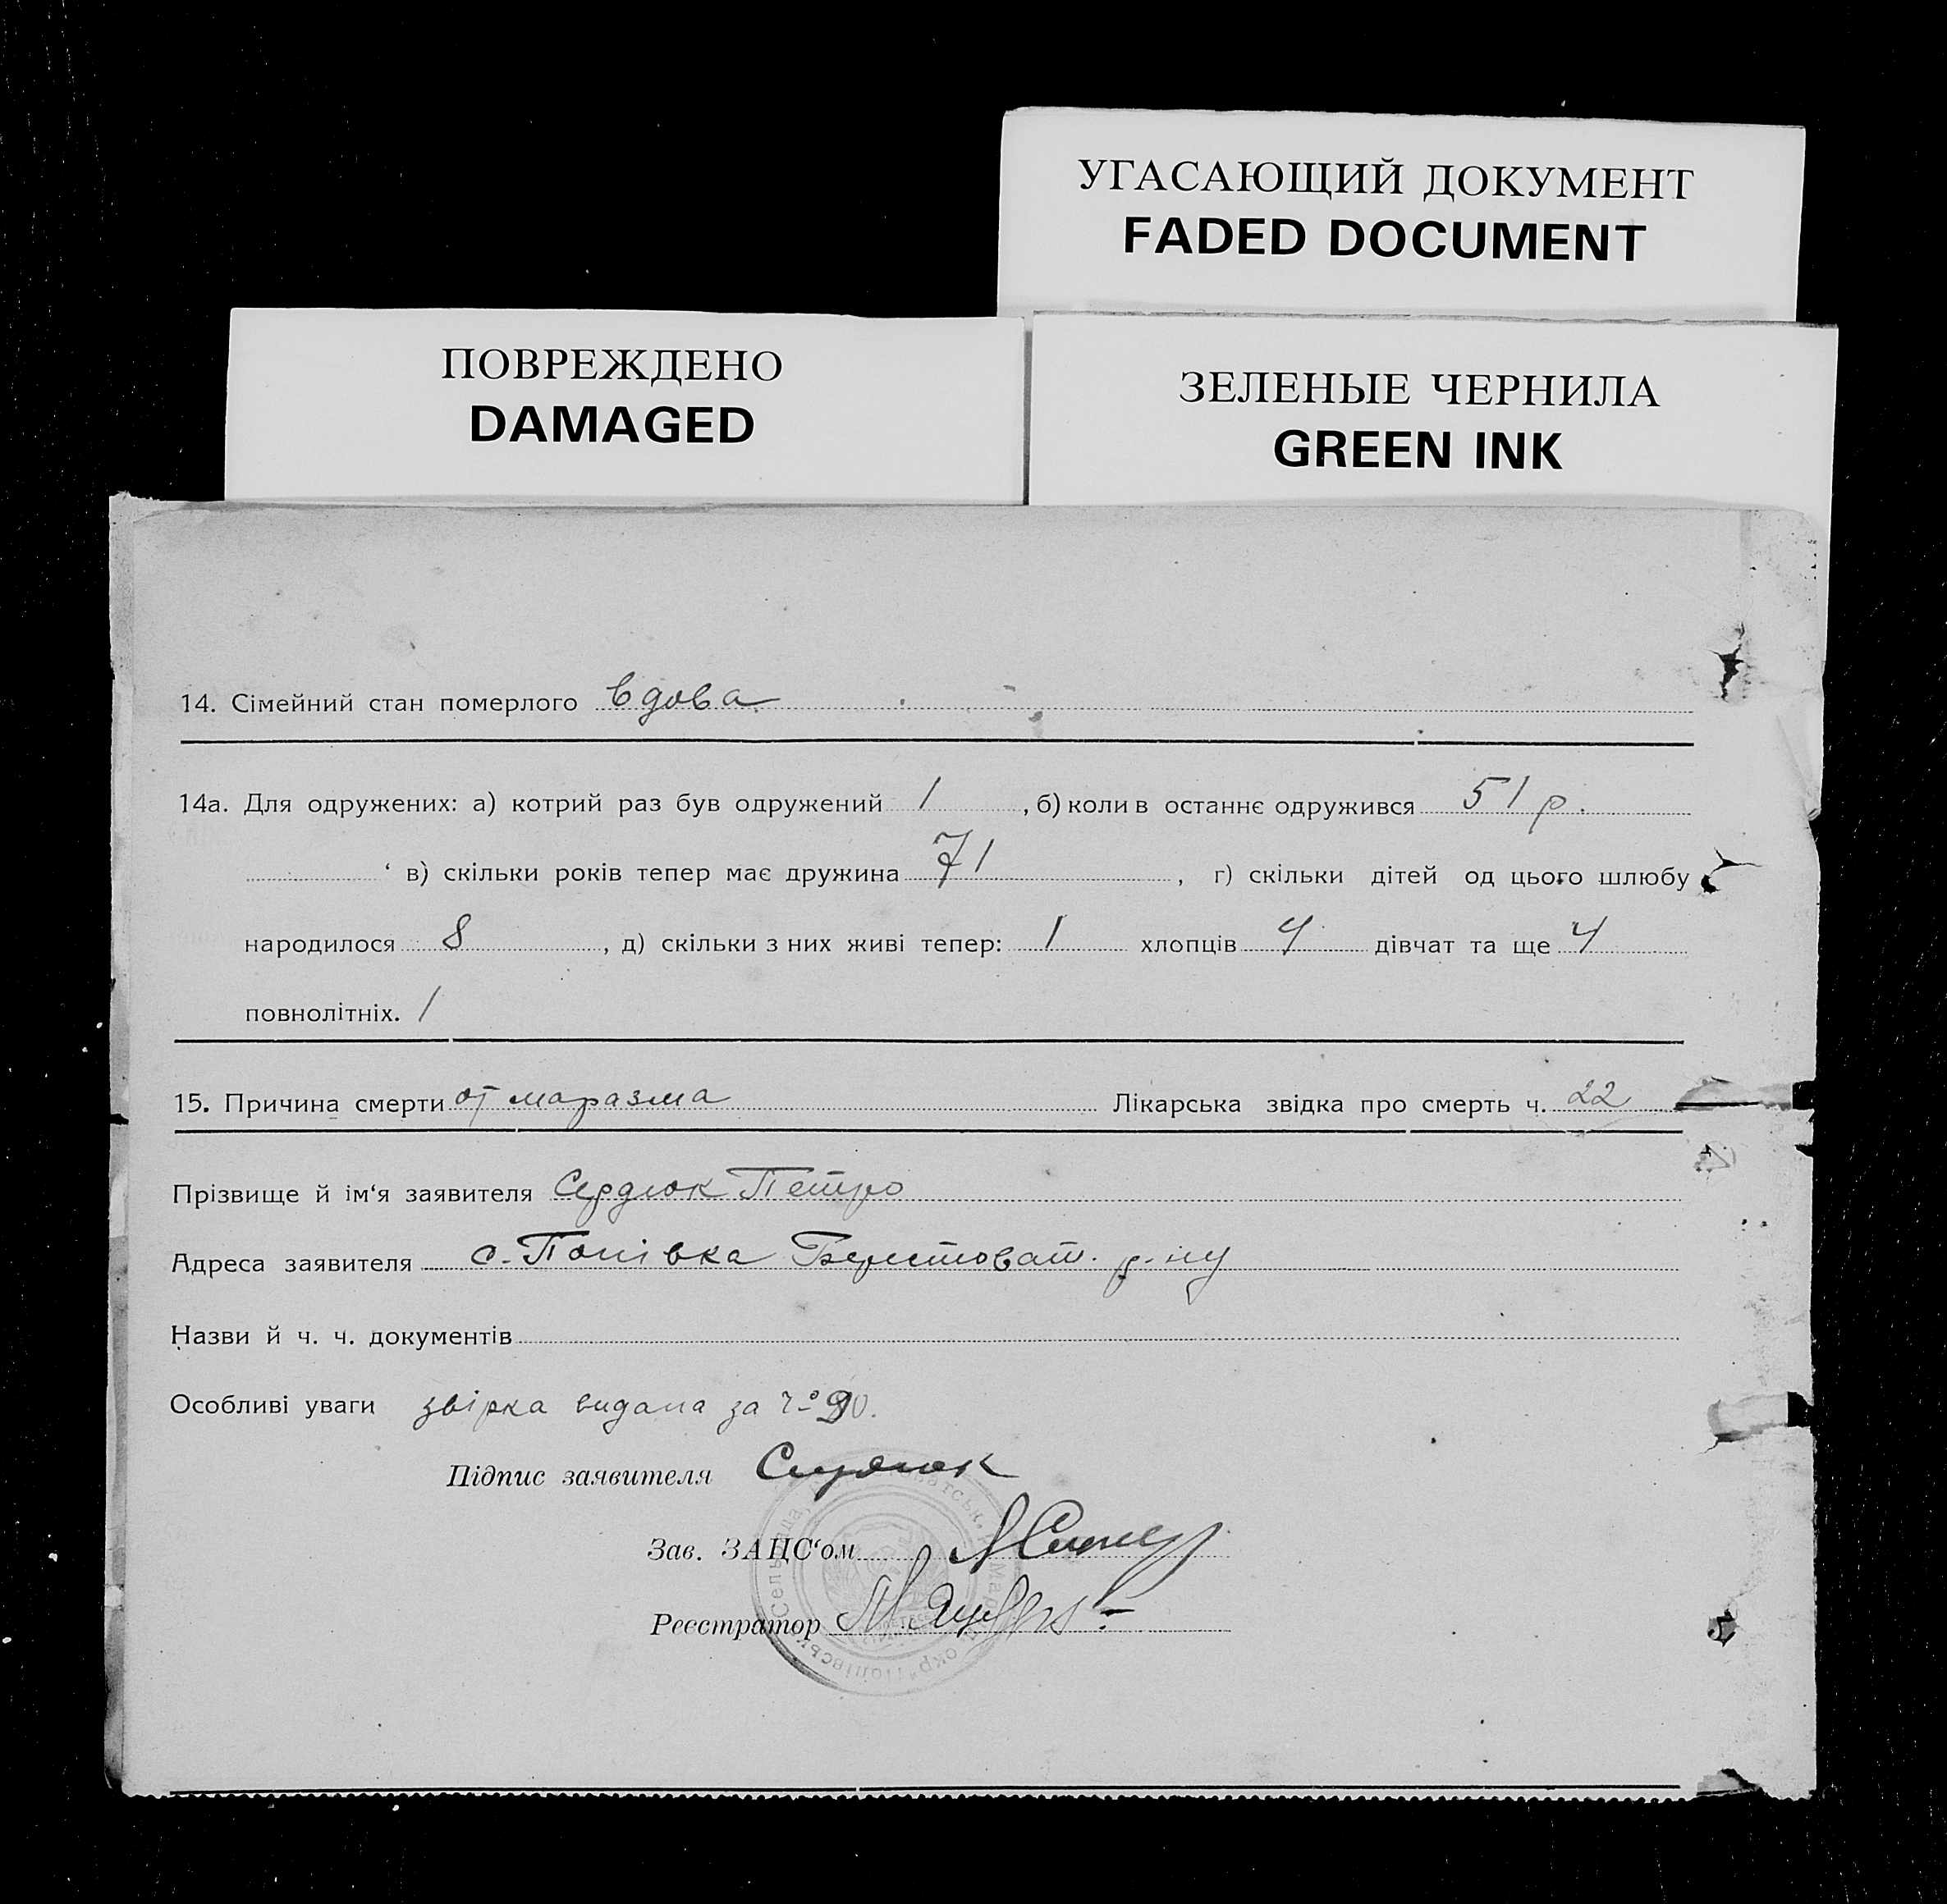 УГАСАЮЩИЙ ДОКУМЕНТ
FADED DOCUMENT
ПОВРЕЖДЕНО
DAMAGED
ЗЕЛЕНЫЕ ЧЕРНИЛА
GREEN INK
14. Сімейний стан померлого вдова
14а. Для одружених: а) котрий раз був одружений 1, б) коли в останнє одружився 51 р.
в) скільки років тепер має дружина 71, г) скільки дітей од цього шлюбу
народилося 8, д) скільки з них живі тепер: 1 хлопців 4 дівчат та ще 4
повнолітніх. 1
15. Причина смерти от маразма Лікарська звідка про смерть ч. 22
Прізвище й ім‘я заявителя Сердюк Петро
Адреса заявителя с. Попівка Берестоват. р-ну
Назви й ч. ч. документів
Особливі уваги звірка видана за 90.
Підпис заявителя Сердюк
Зав. ЗАЦС‘ом
Реєстратор